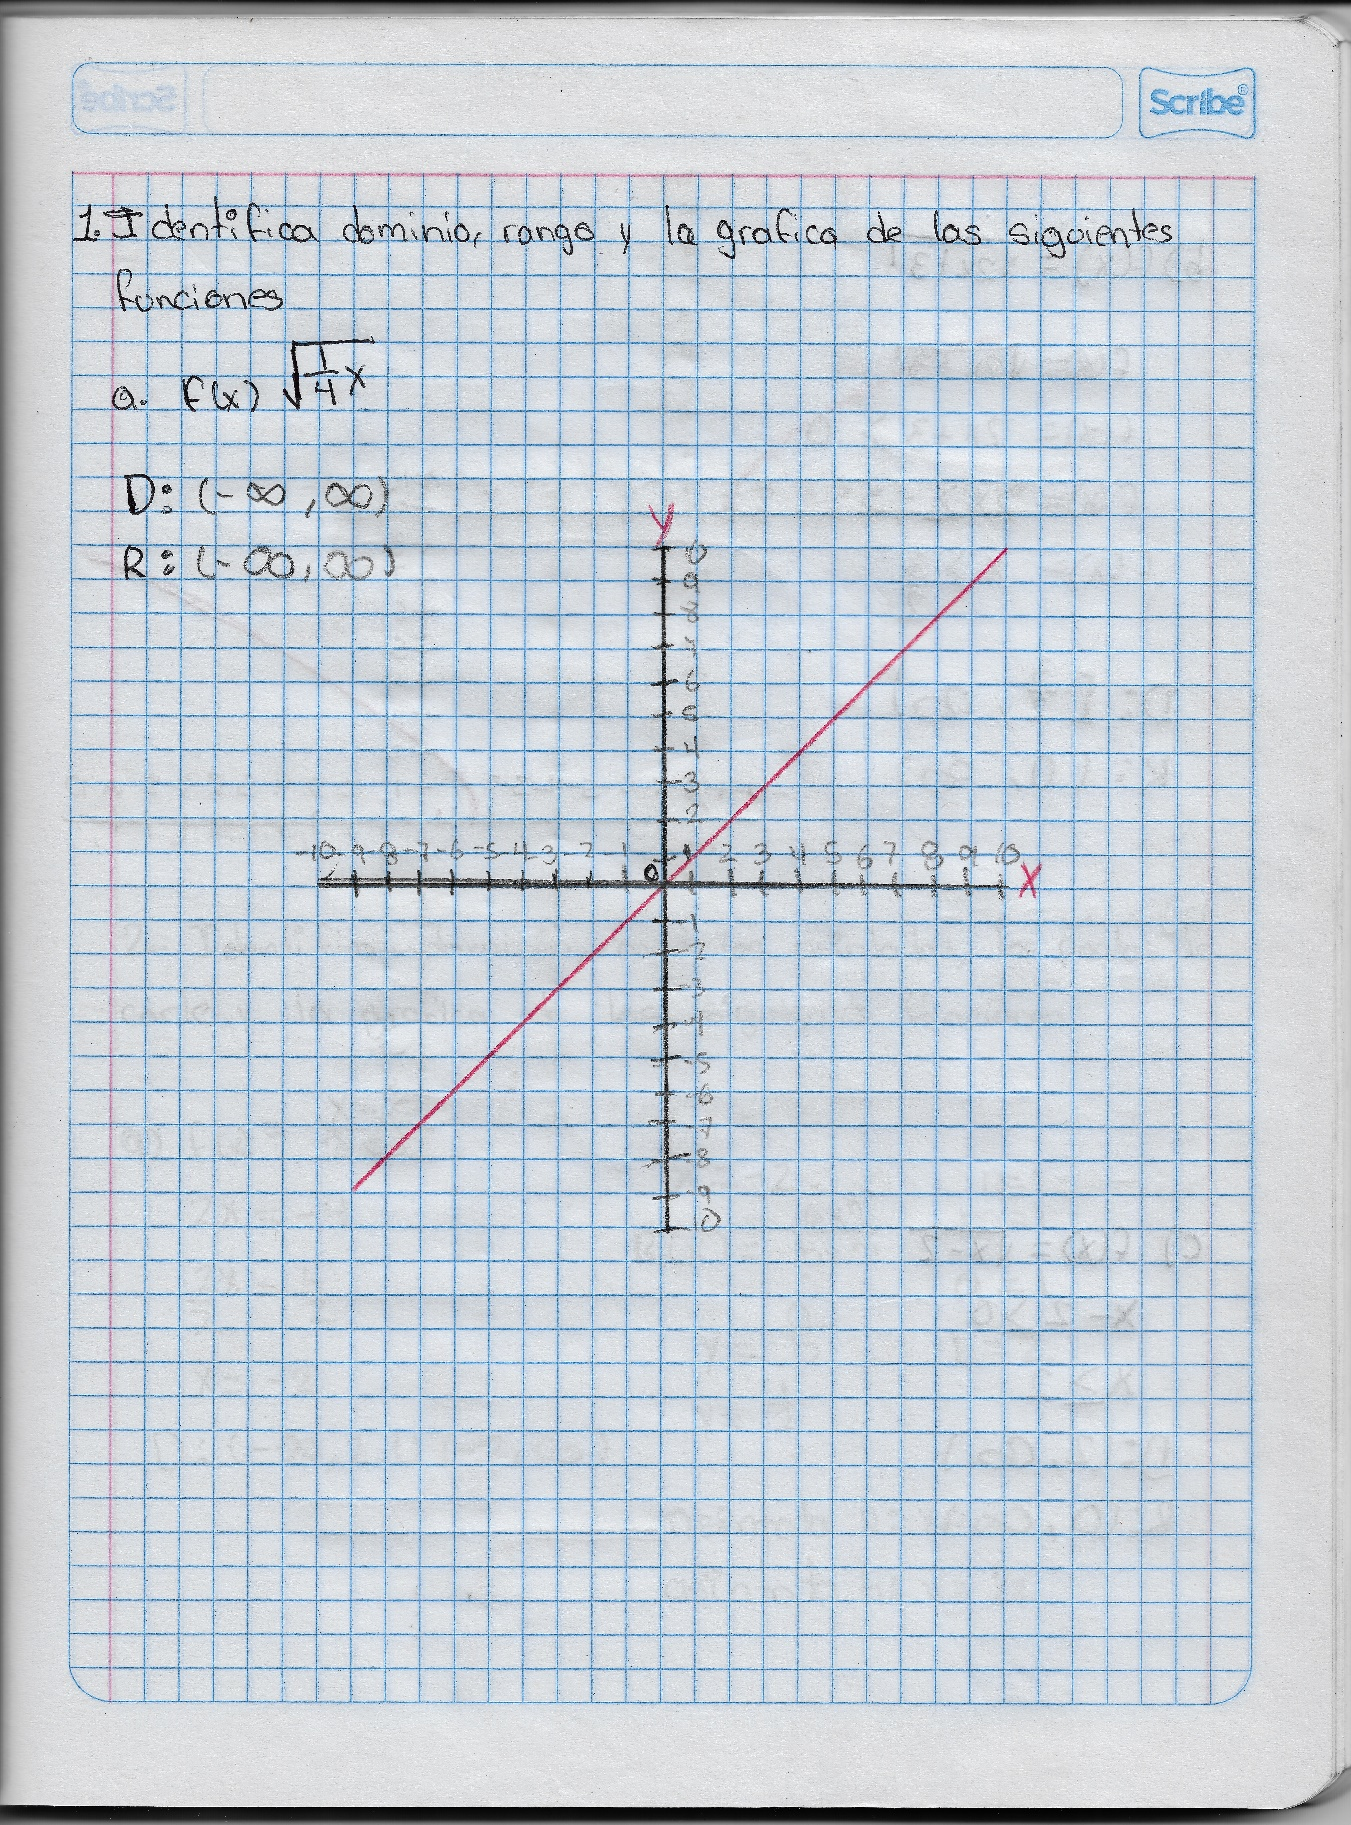 Scribe
1. Identifica dominio, rango y la grafica de las siguientes
funciones
a. f(x) √1/4 x
D: (-∞, ∞)
R: (-∞, ∞)
y
9
6
5
4
3
2
-10 -9 -8 -7 -6 -5 -4 -3 -2 -1 0 1 2 3 4 5 6 7 8 9 10 X
-1
-2
-3
-4
-5
-6
-7
-8
-9
0